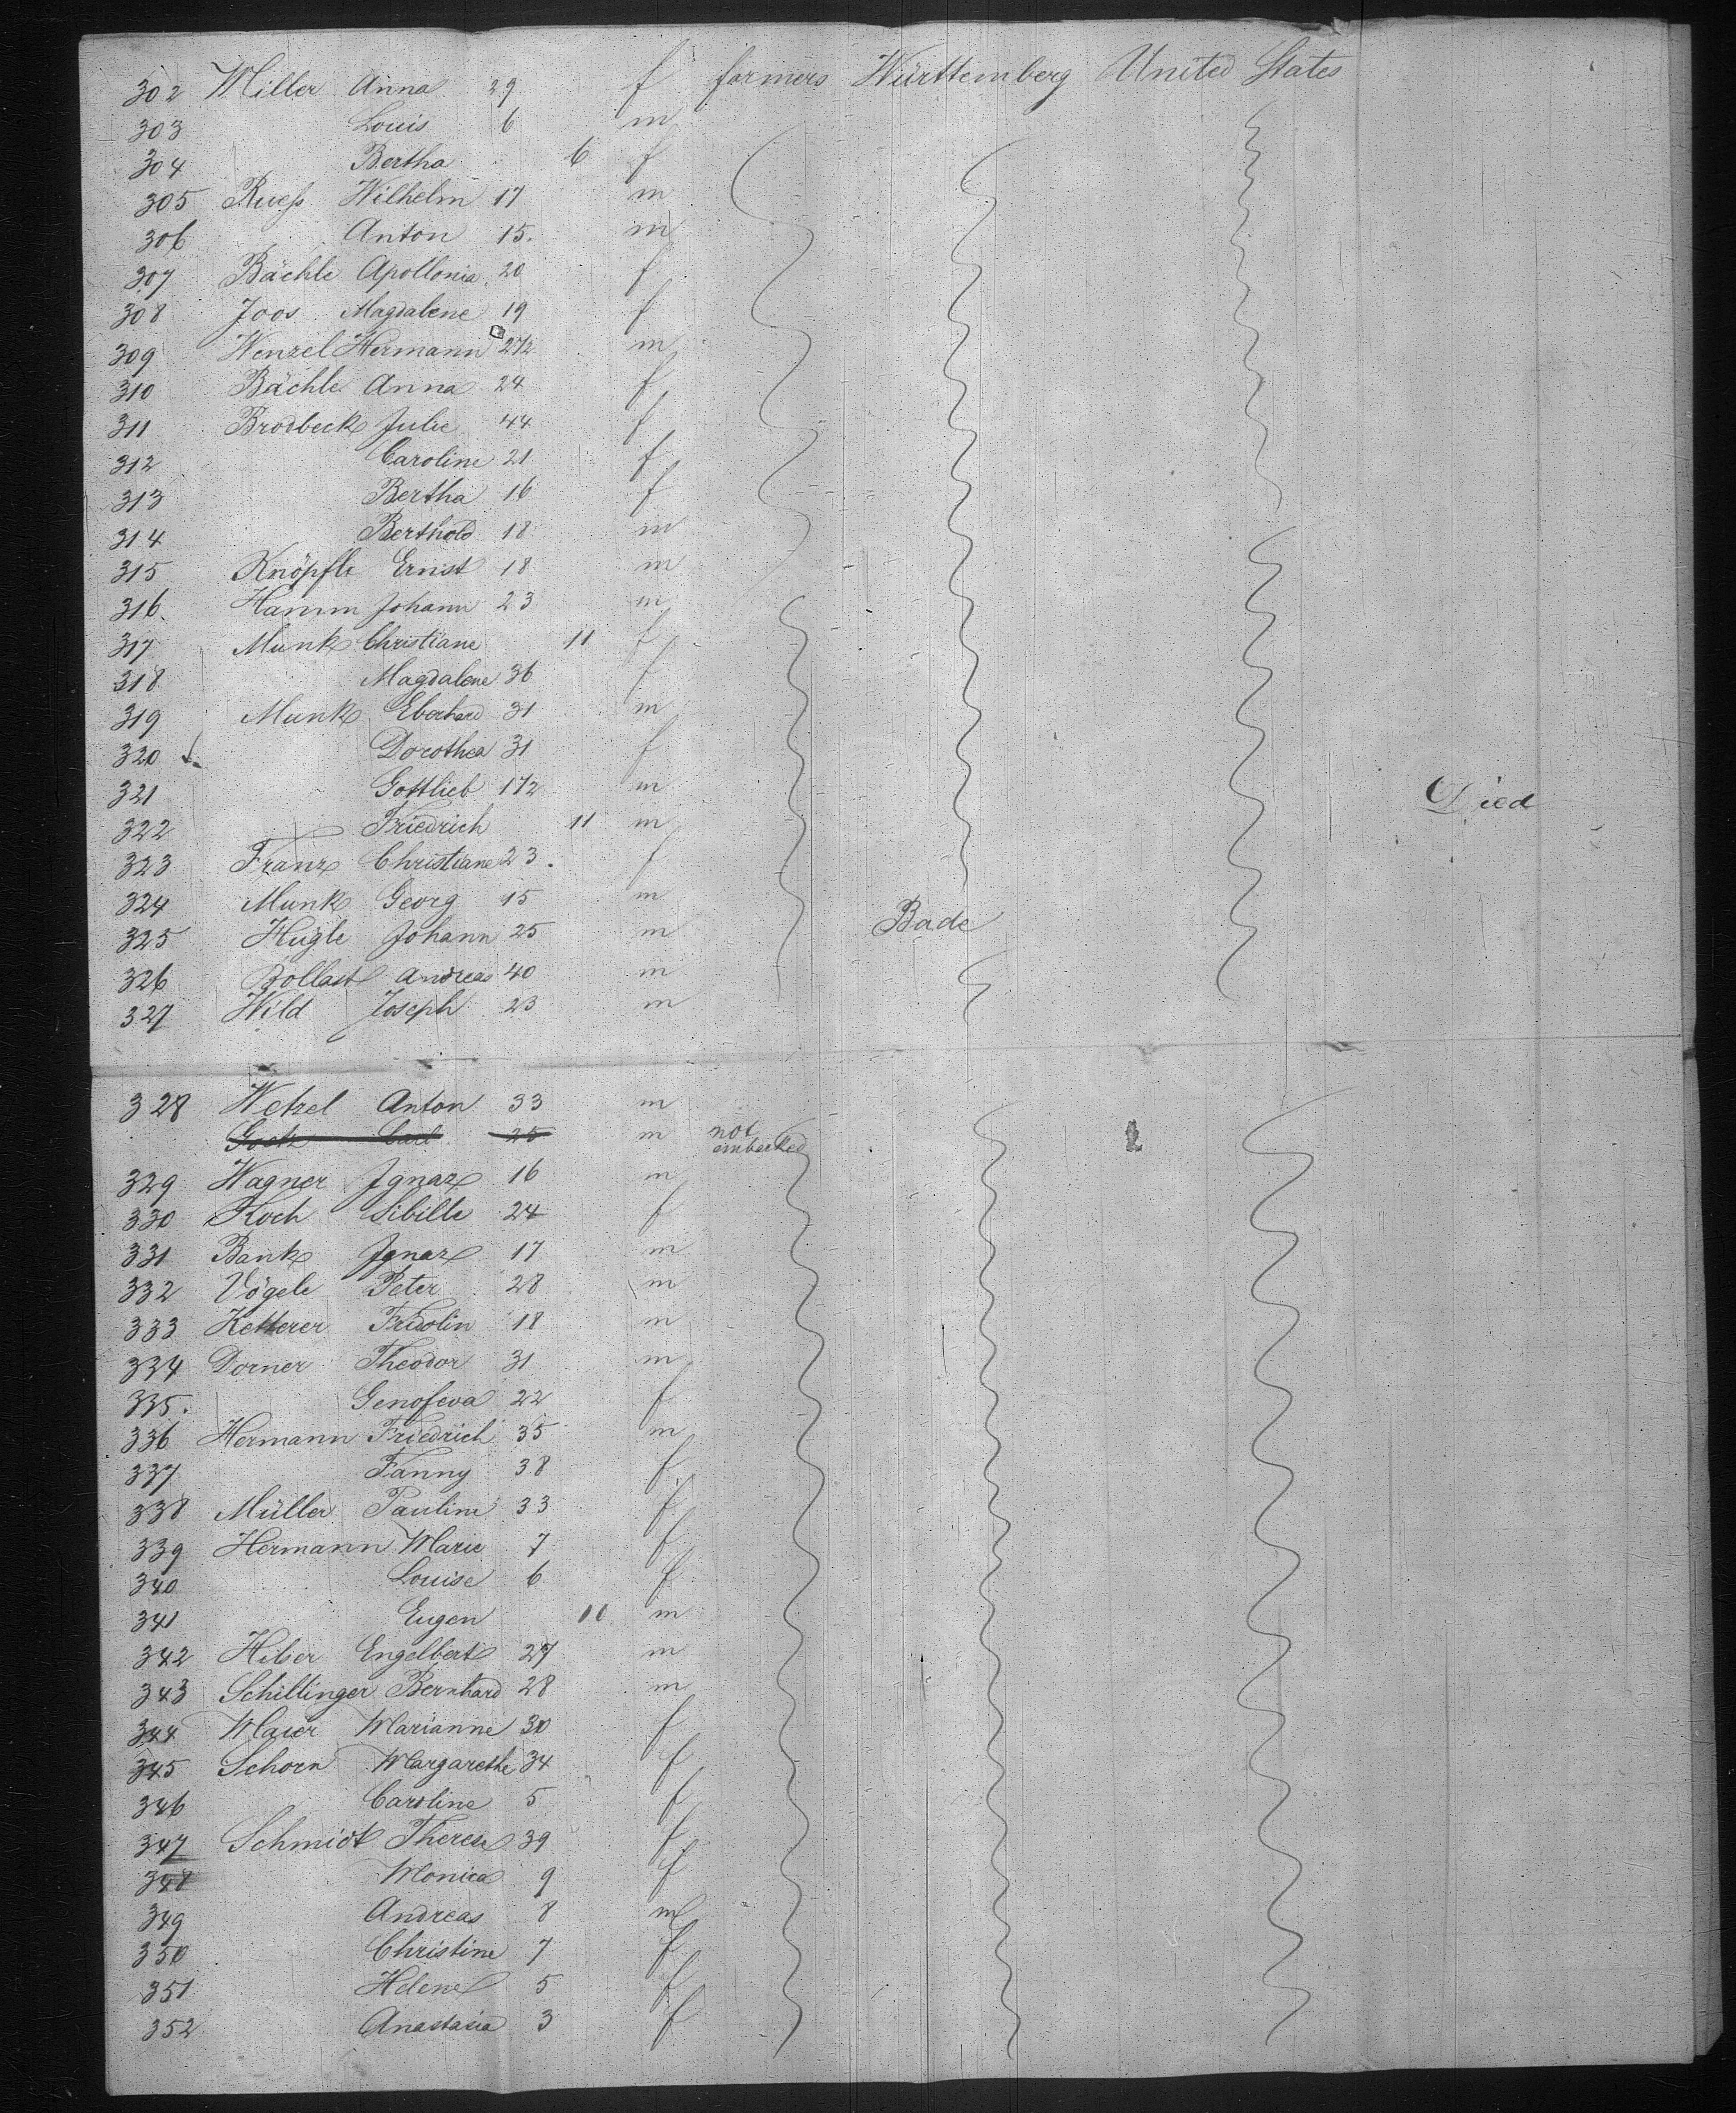 302 Miller Anna 29 f farmers Württemberg United States
303 Louis 6 m
304 Bertha 6 f
305 Rueß Wilhelm 17 m
306 Anton 15. m
307 Bächle Apollonia 20 f
308 Joos Magdalene 19 f
309 Wenzel Hermann 27 m
310 Bächle Anna 24 f
311 Brodbeck Julie 44 f
312 Caroline 21 f
313 Bertha 16 f
314 Berthold 18 m
315 Knöpfle Ernst 18 m
316. Hamm Johann 23 m
317 Munk Christiane 11 f
318 Magdalene 36 f
319 Munk Eberhard 31 m
320 Dorothea 31 f
321 Gottlieb 1 1/2 m Died
322 Friedrich 11 m
323 Franz Christiane 23. f
324 Munk Georg 15 m
325 Hügle Johann 25 m Bade
326 Andreas 40 m
327 Wild Joseph 23 m
328 Wetzel Anton 33 m
Carl 25 m not embarked
329 Wagner Ignaz 16 m
330 Koch Sibille 24 f
331 Bank Ignaz 17 m
332 Vögele Peter 28 m
333 Ketterer Fridolin 18 m
334 Dorner Theodor 31 m
335. Genofeva 22 f
336 Hermann Friedrich 35 m
337 Fanny 38 f
338 Müller Pauline 33 f
339 Hermann Marie 7 f
340 Louise 6 f
341 Eugen m
342 Hilser Engelbert 27 m
343 Schillinger Bernhard 28 m
344 Maier Marianne 30 f
345 Schorn Margarethe 34 f
346 Caroline 5 f
347 Schmidt Therese 39 f
348 Monica 9 f
349 Andreas 8 m
350 Christine 7 f
351 Helene 5 f
352 Anastasia 3 f